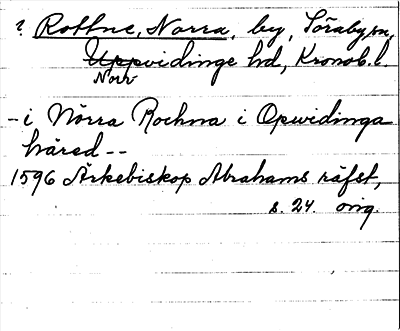 ? Rottne, Norra, by, Söraby sn,
Uppvidinge hd, Kronob. l.
Norr
- i Nörra Rochna i Opwidinga
häred --
1596 Ärkebiskop Abrahams räfst,
s. 24. orig.